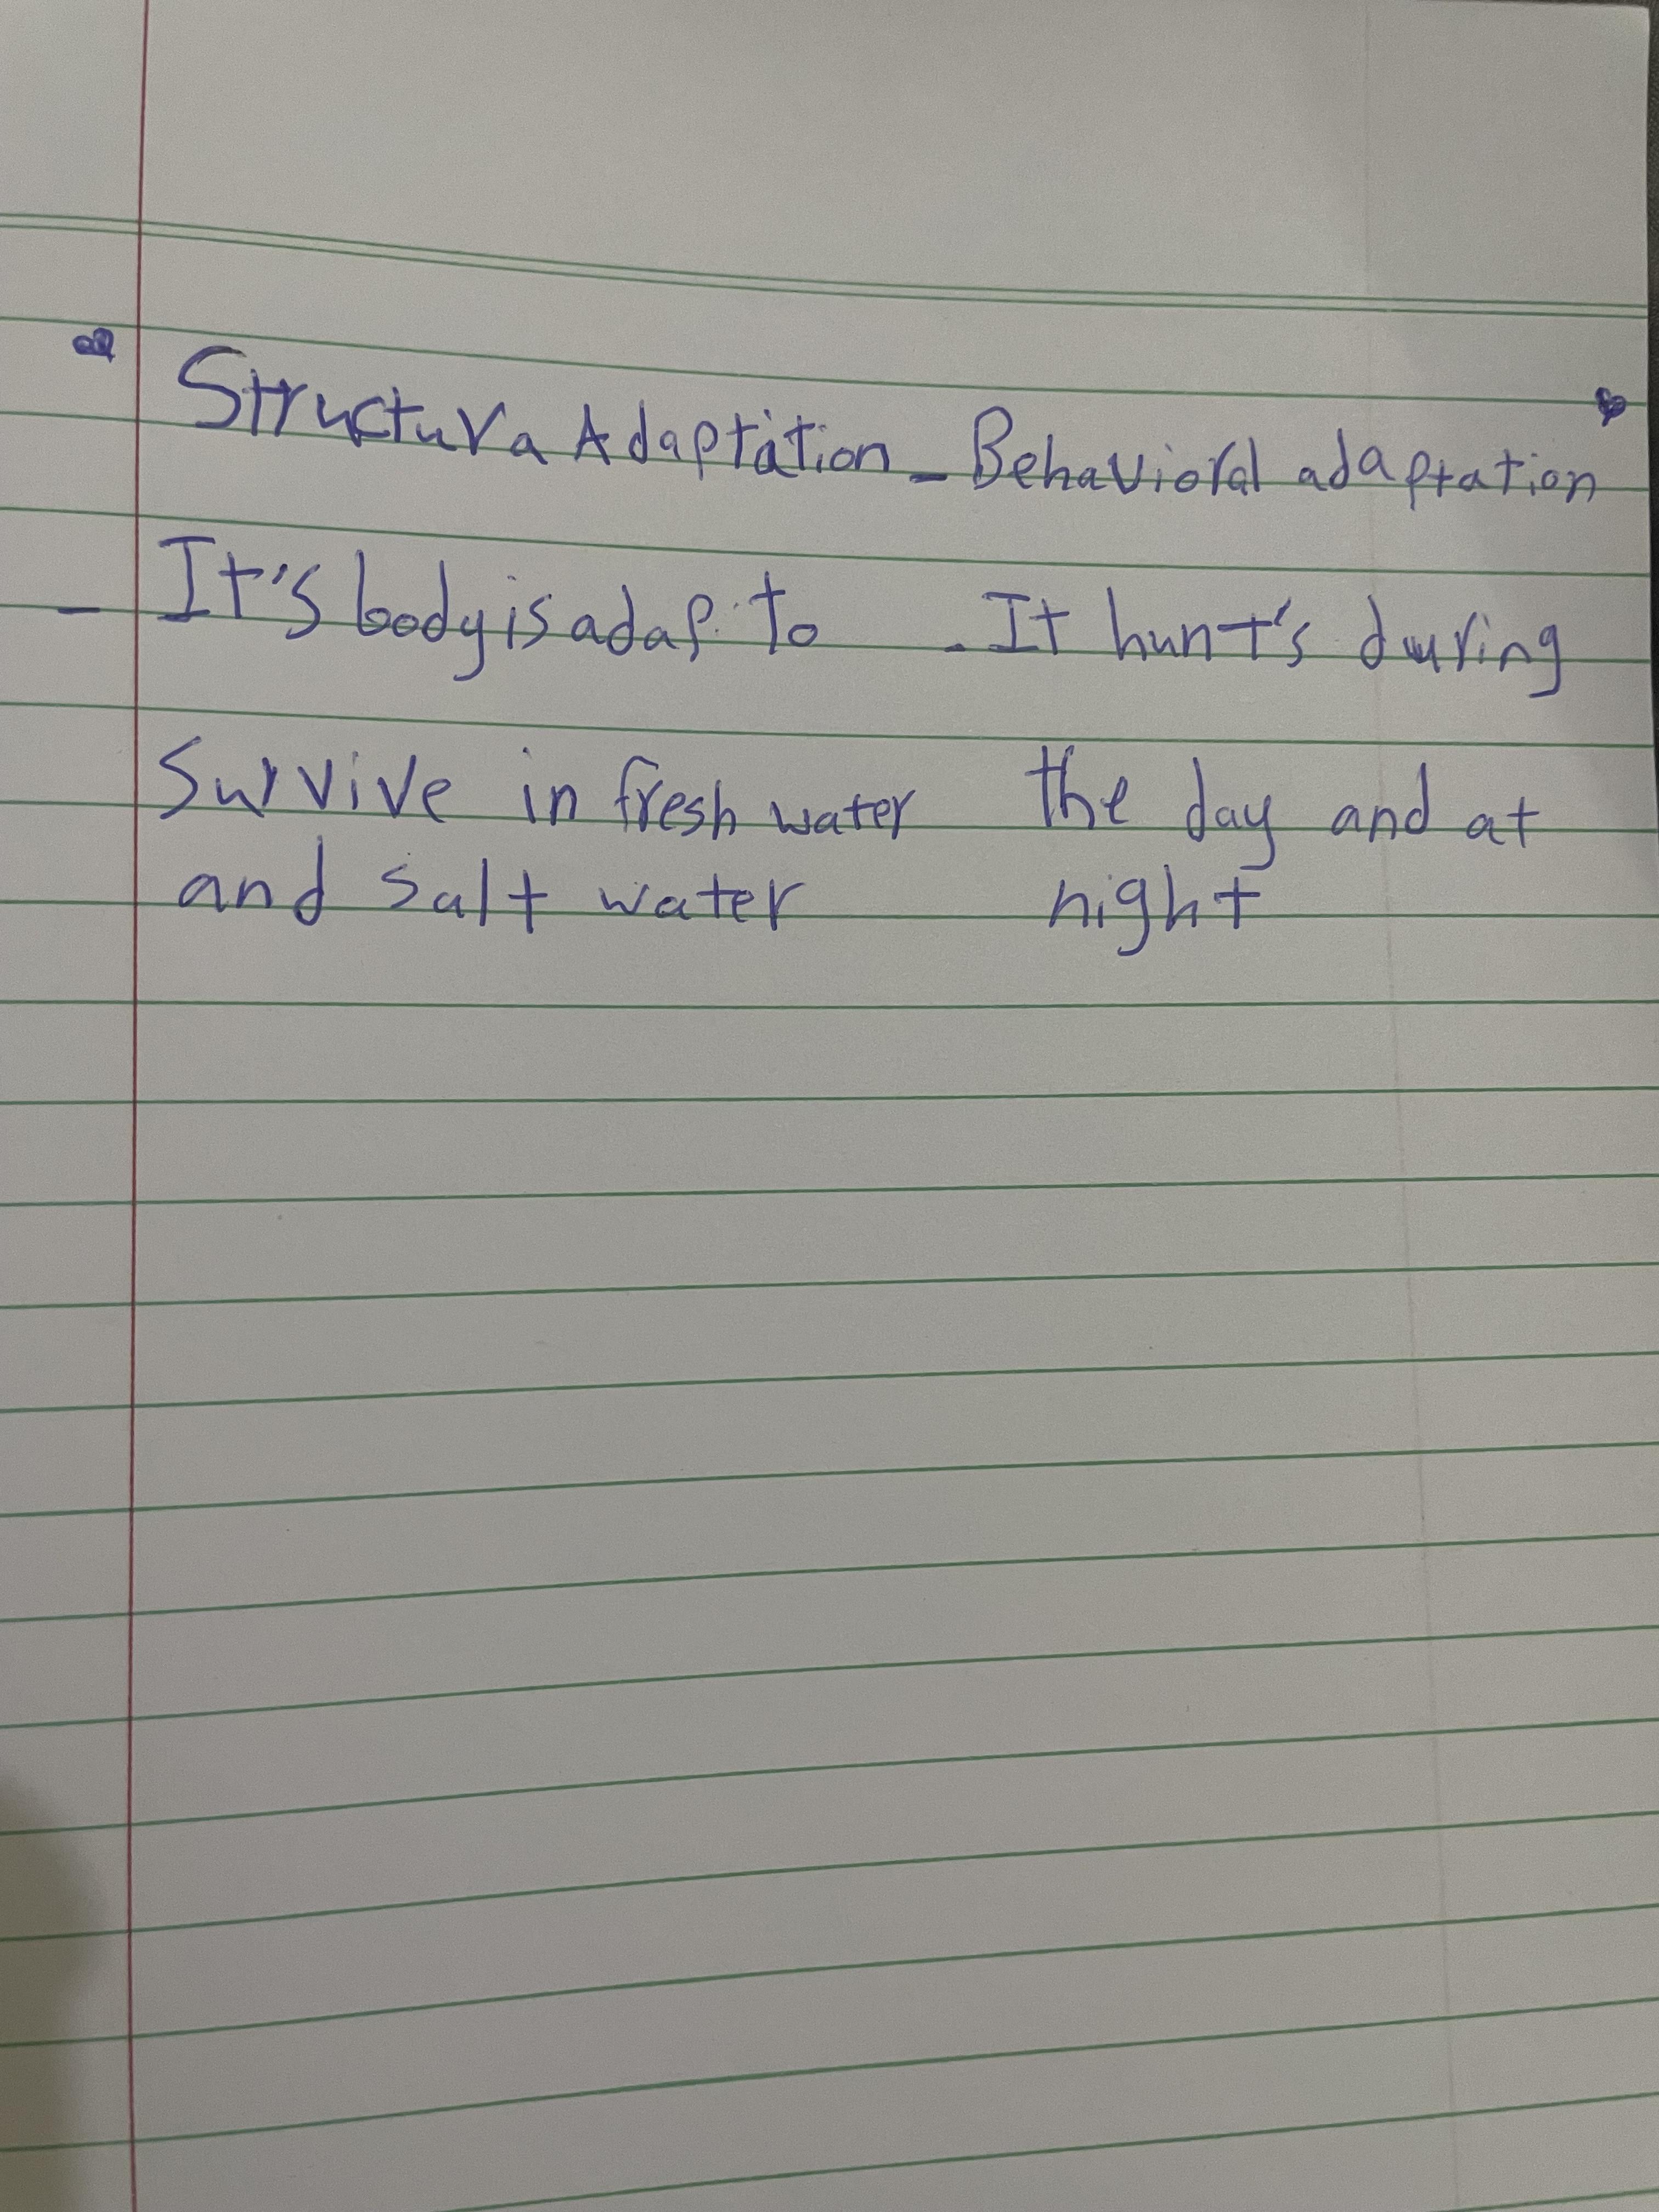 Structura Adaptation - Behavioral adaptation
- It's body is adap. to - It hunt's during
Survive in fresh water the day and at
and salt water night